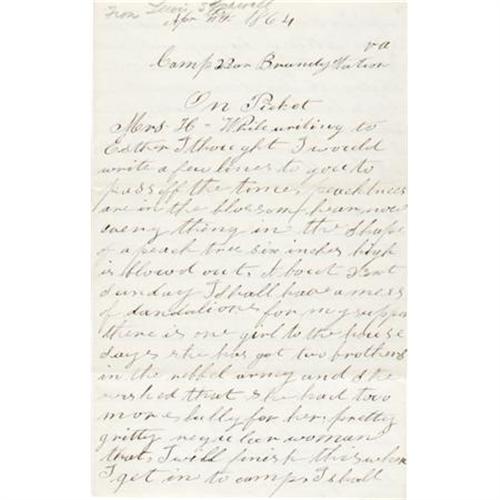 From Lewis
Apr 11th 1864
Va
Camp Near Brandy Station
On Picket
Mrs H - While writing to
Esther I thought I would
write a few lines to you to
pass off the time, peach trees
are in the blossom hear now
eneny thing in the shape
of a peach tree six inches high
is blowd out. A bout next
sunday I shall have a mess
of dandalions for my supper
there is one girl to the house
says she has got two brothers
in the rebbel army and she
wished that she had two
more bully for her pretty
gritty reguler woman
that, I will finish this when
I get in to camp I shall